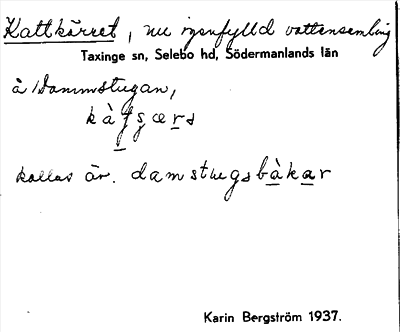 Kattkärret, nu igenfylld vattensamling
Taxinge sn, Selebo hd, Södermanlands län
å Dammstugan,
kallas äv. damstugsbàkar
Karin Bergström 1937.